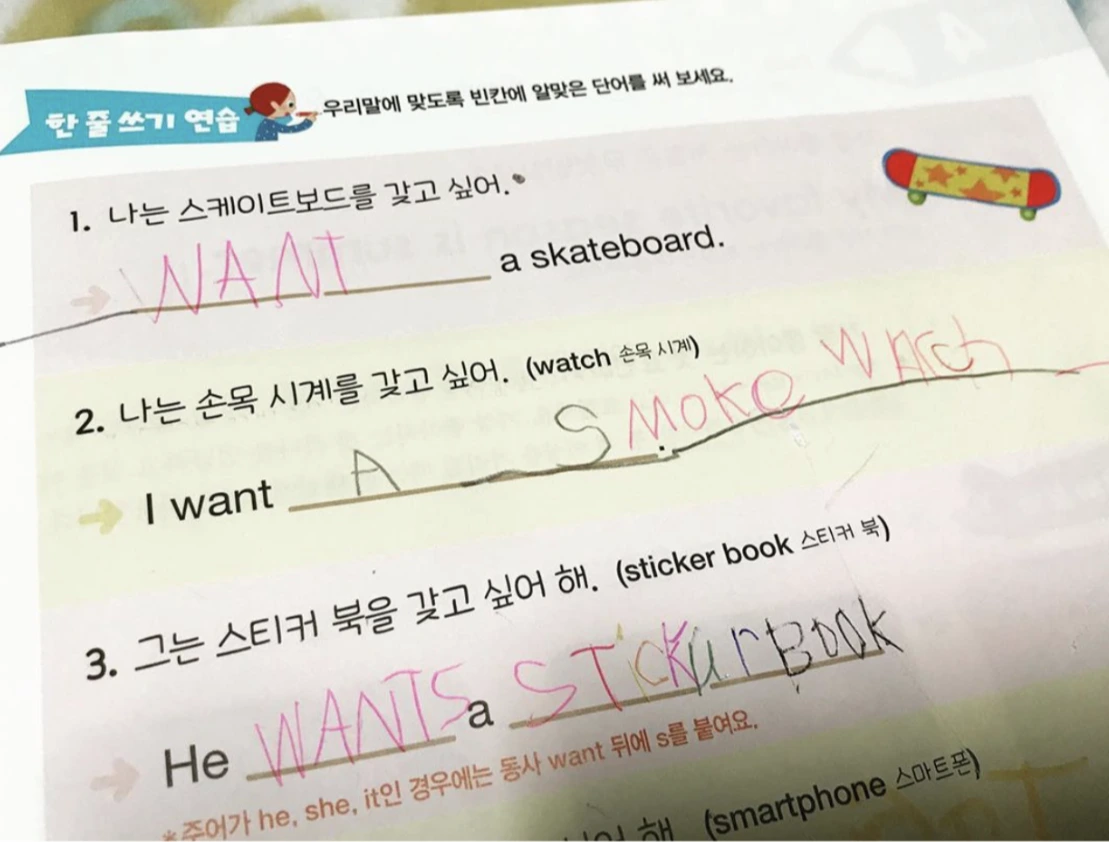 한 줄 쓰기 연습 우리말에 맞도록 빈칸에 알맞은 단어를 써 보세요.
1. 나는 스케이트보드를 갖고 싶어.
WANT a skateboard.
2. 나는 손목 시계를 갖고 싶어. (watch 손목 시계)
I want A SMOKe WAtch.
3. 그는 스티커 북을 갖고 싶어 해. (sticker book 스티커 북)
He WANTS a STiCKurBOOK
*주어가 he, she, it인 경우에는 동사 want 뒤에 s를 붙여요.
해. (smartphone 스마트폰)